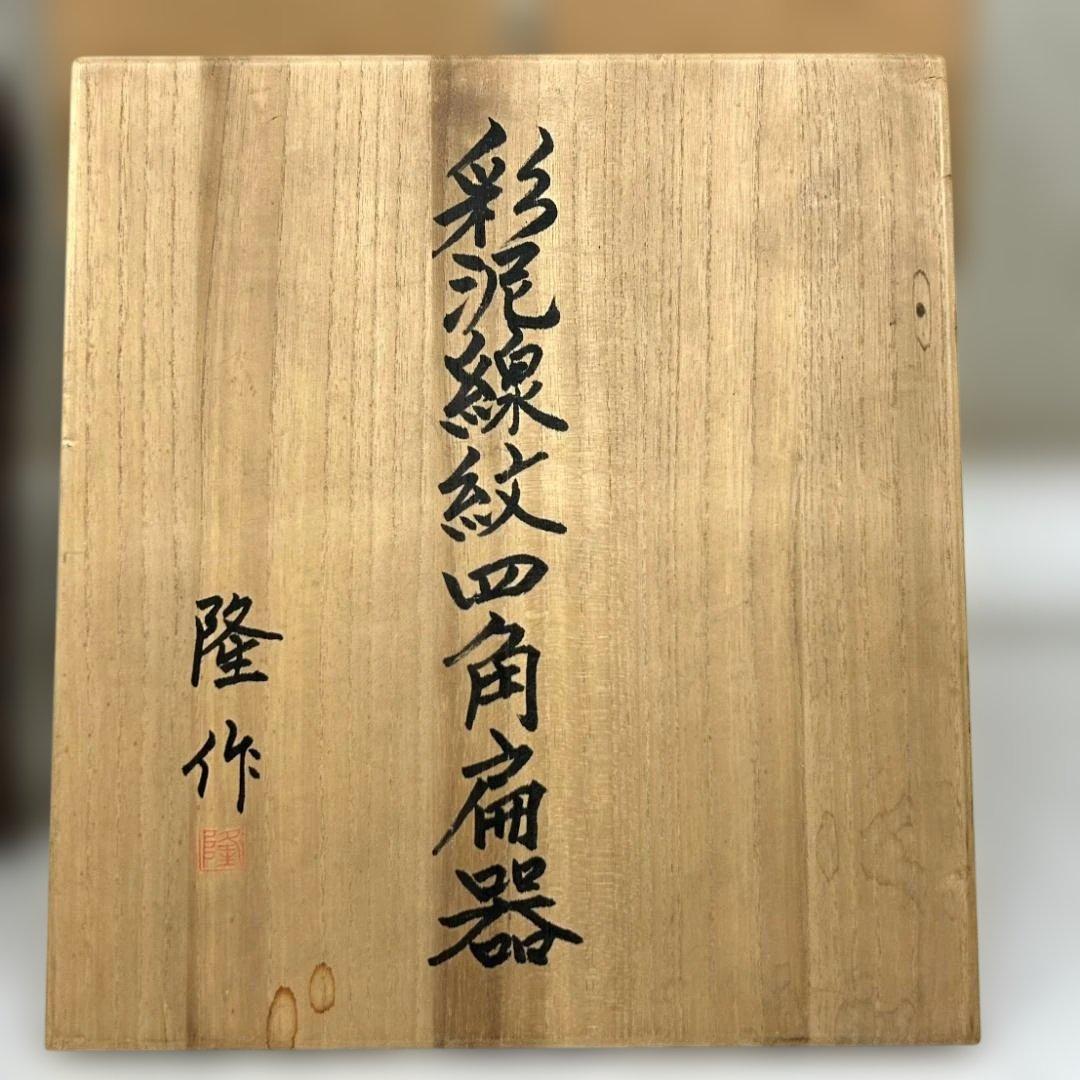 彩泥線紋四角扁器
隆作
隆